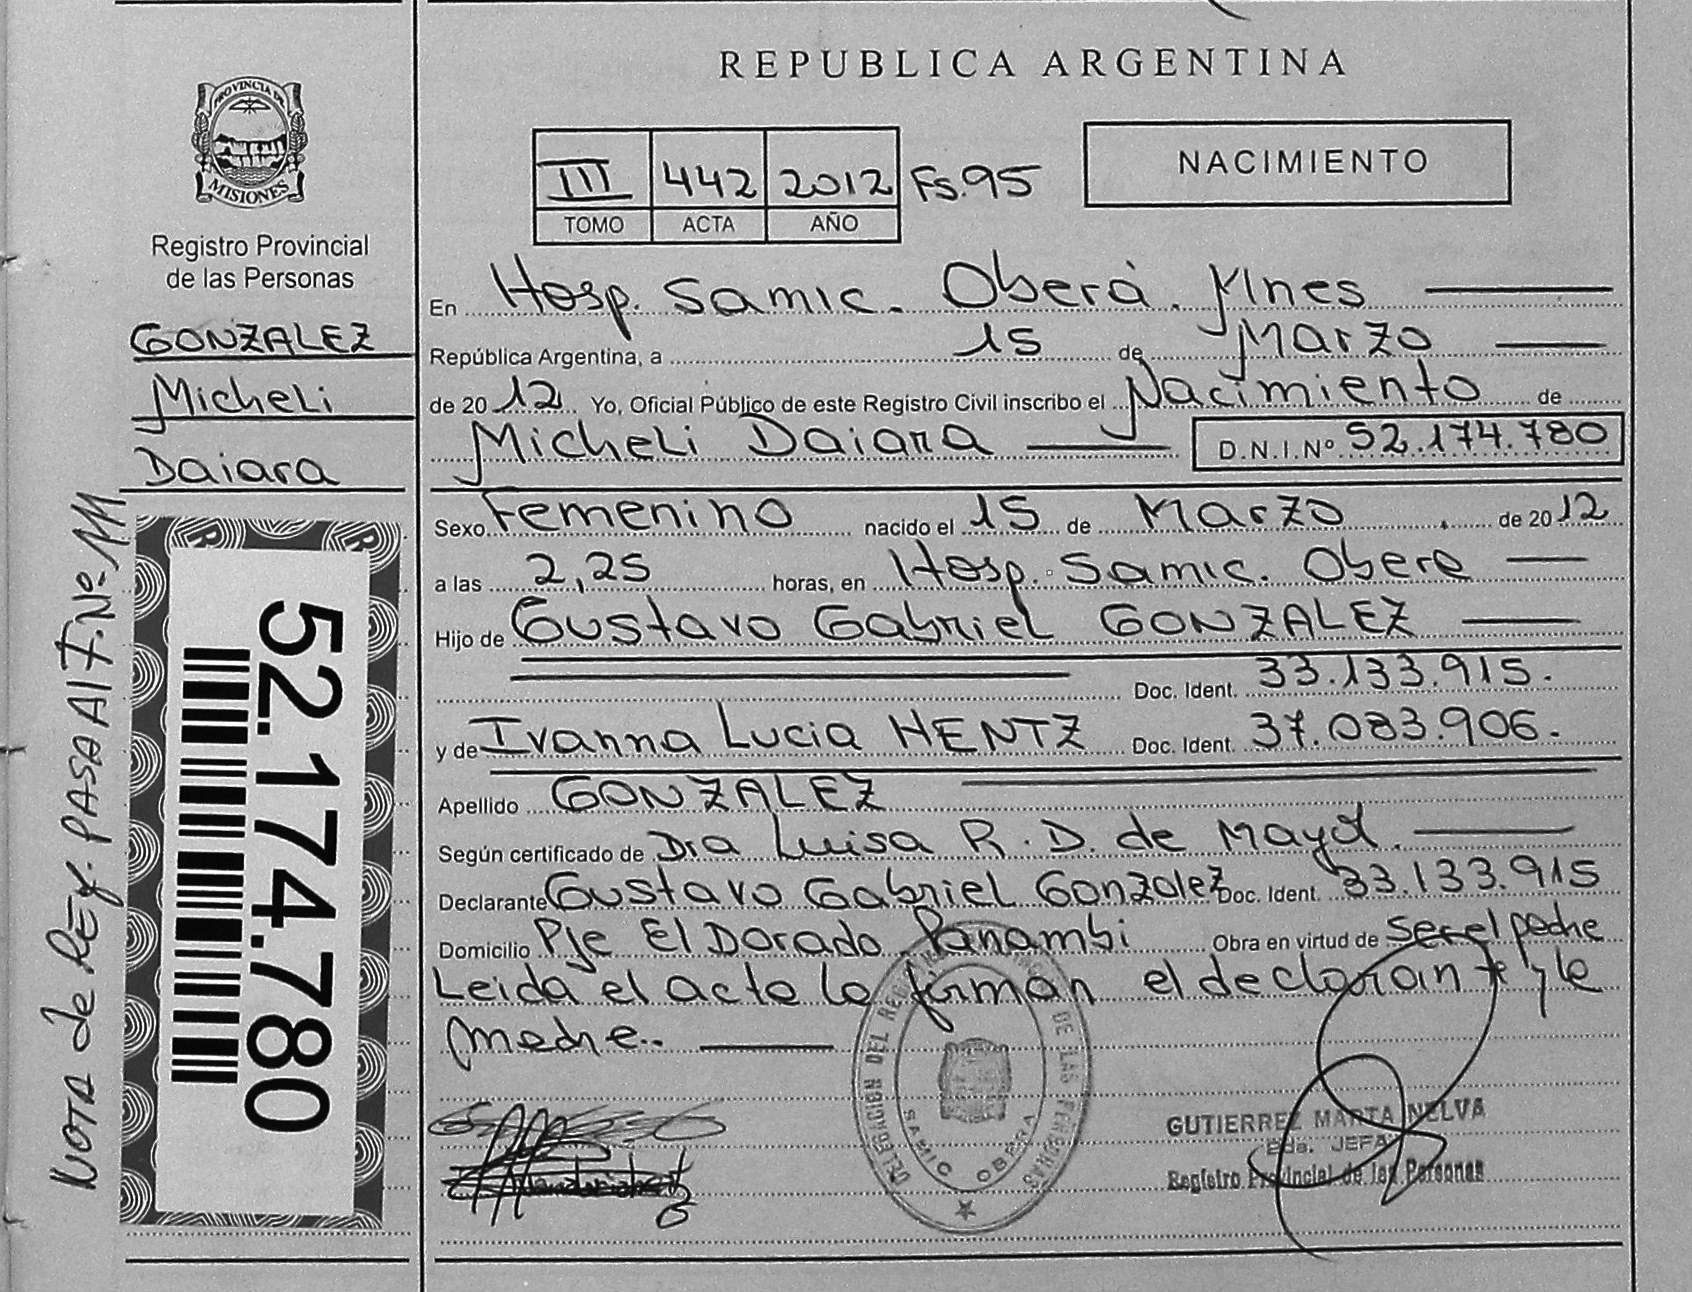 REPUBLICA ARGENTINA
PROVINCIA DE
MISIONES
Registro Provincial
de las Personas
GONZALEZ
Micheli
Daiara
Nota de Ref. PASA Al T. Nº-
52.174.780
III 442 2012 Fs.95
TOMO ACTA AÑO
NACIMIENTO
En Hosp. Samic. Oberá. Mnes
República Argentina, a 15 de Marzo
de 2012 Yo, Oficial Público de este Registro Civil inscribo el Nacimiento de
Micheli Daiara D.N.I.Nº 52.174.780
Sexo Femenino nacido el 15 de Marzo de 2012
a las 2,25 horas, en Hosp. Samic. Obera
Hijo de Gustavo Gabriel GONZALEZ
Doc. Ident. 33.133.915.
y de Ivanna Lucia HENTZ Doc. Ident. 37.083.906.
Apellido GONZALEZ
Según certificado de Dra Luisa R. D. de Mayol.
Declarante Gustavo Gabriel Gonzalez Doc. Ident. 33.133.915
Domicilio Pje El Dorado Panambi Obra en virtud de ser el padre
Leida el acta la firman el declarante y la
madre..
DELEGACION DEL REGISTRO DE LAS PERSONAS
SAMIC OBERA
GUTIERREZ MARTA NELVA
Eda. JEFA
Registro Provincial de las Personas